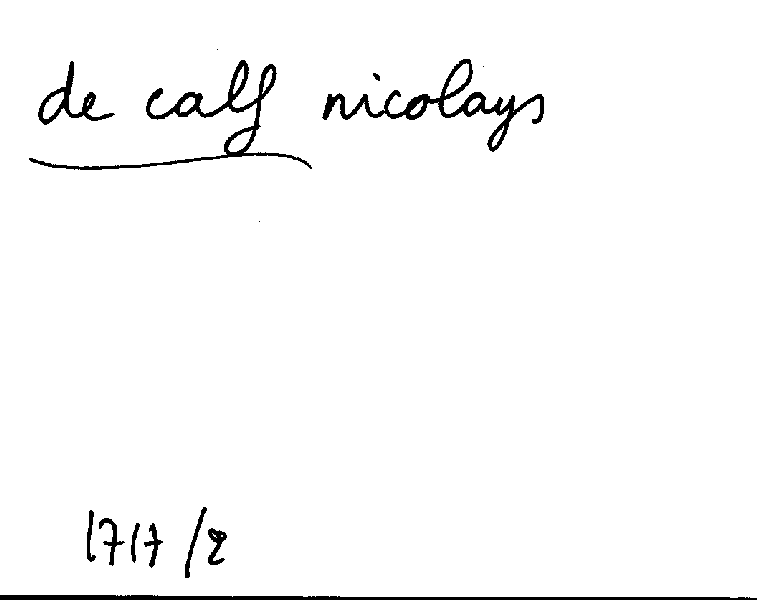 de calf nicolays
1717/2